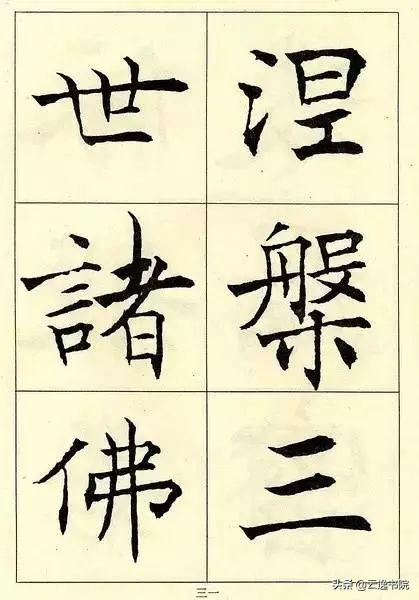 涅槃三
世諸佛
三一
头条@云逸书院